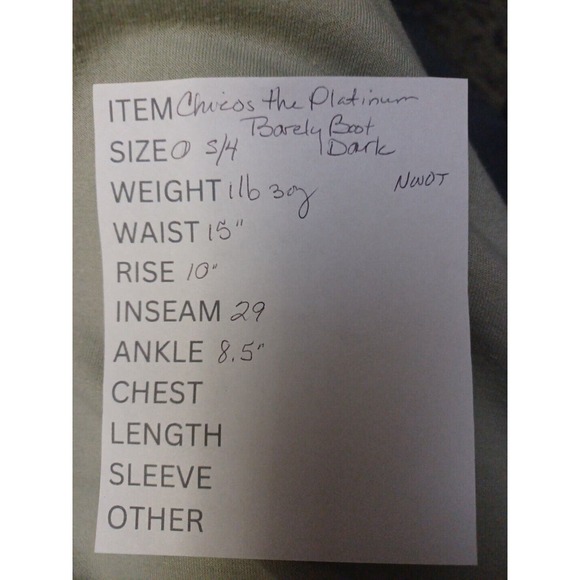 ITEM Chicos the Platinum
Barely Boot
SIZE 0 S/4 Dark
WEIGHT 1lb 3oz NWOT
WAIST 15"
RISE 10"
INSEAM 29
ANKLE 8.5"
CHEST
LENGTH
SLEEVE
OTHER